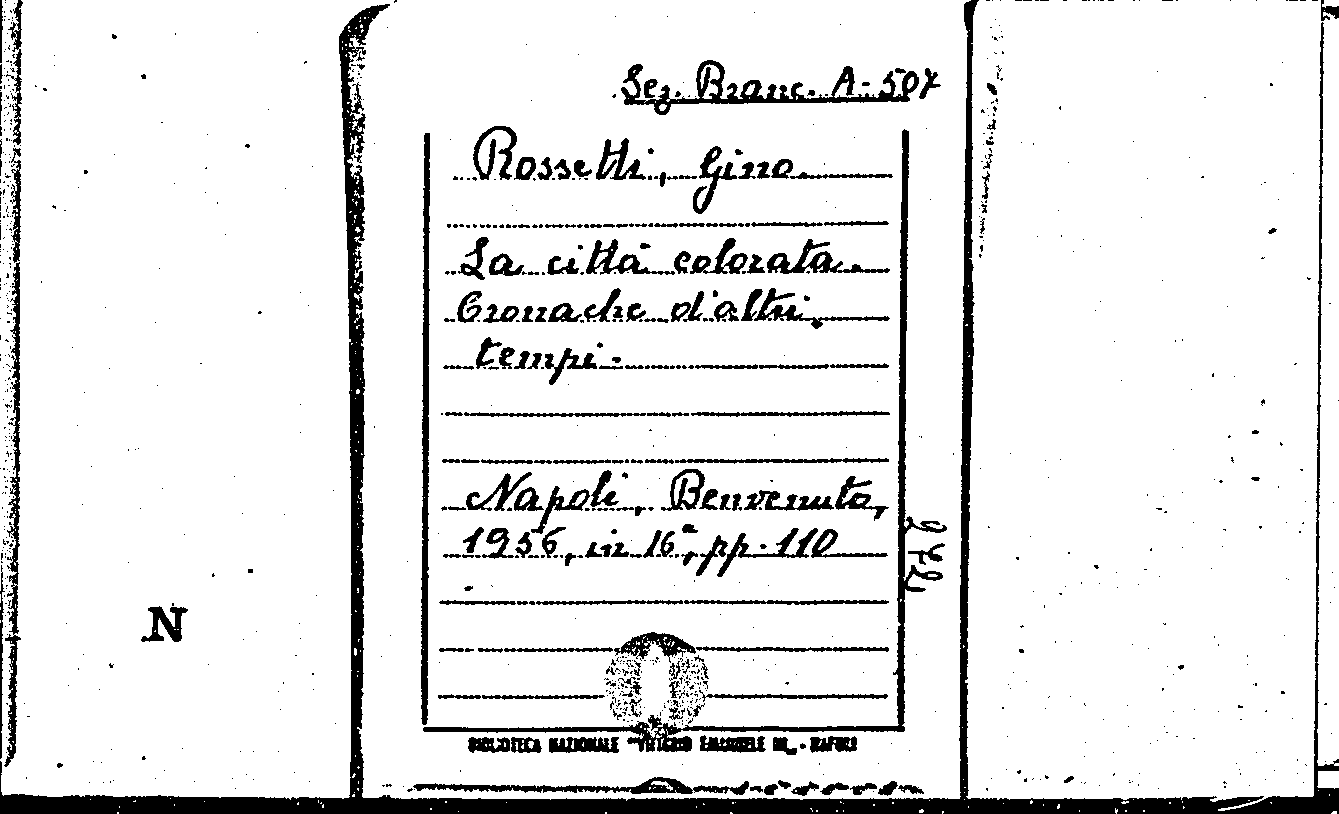 Sez. Branc. A-507
Rossetti, Gino.
La città colorata.
Cronache d'altri
tempi.
Napoli, Benvenuto,
1956, in 16°, pp. 110
N
BIBLIOTECA NAZIONALE "VITTORIO EMANUELE III„ - NAPOLI